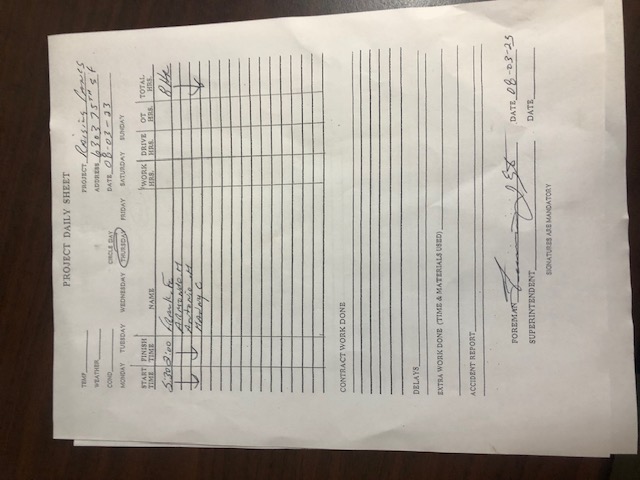 PROJECT DAILY SHEET
TEMP PROJECT Raising Canes
WEATHER ADDRESS 6303 75TH St
COND CIRCLE DAY DATE 08-03-23
MONDAY TUESDAY WEDNESDAY THURSDAY FRIDAY SATURDAY SUNDAY
START TIME FINISH TIME NAME WORK HRS. DRIVE HRS. OT HRS. TOTAL HRS.
5:30 2:00 FRANK. 8 HR
ARMONDO. M
ANTONIO. M
MANNY C
CONTRACT WORK DONE
DELAYS
EXTRA WORK DONE (TIME & MATERIALS USED)
ACCIDENT REPORT
FOREMAN DATE 08-03-23
SUPERINTENDENT DATE
SIGNATURES ARE MANDATORY